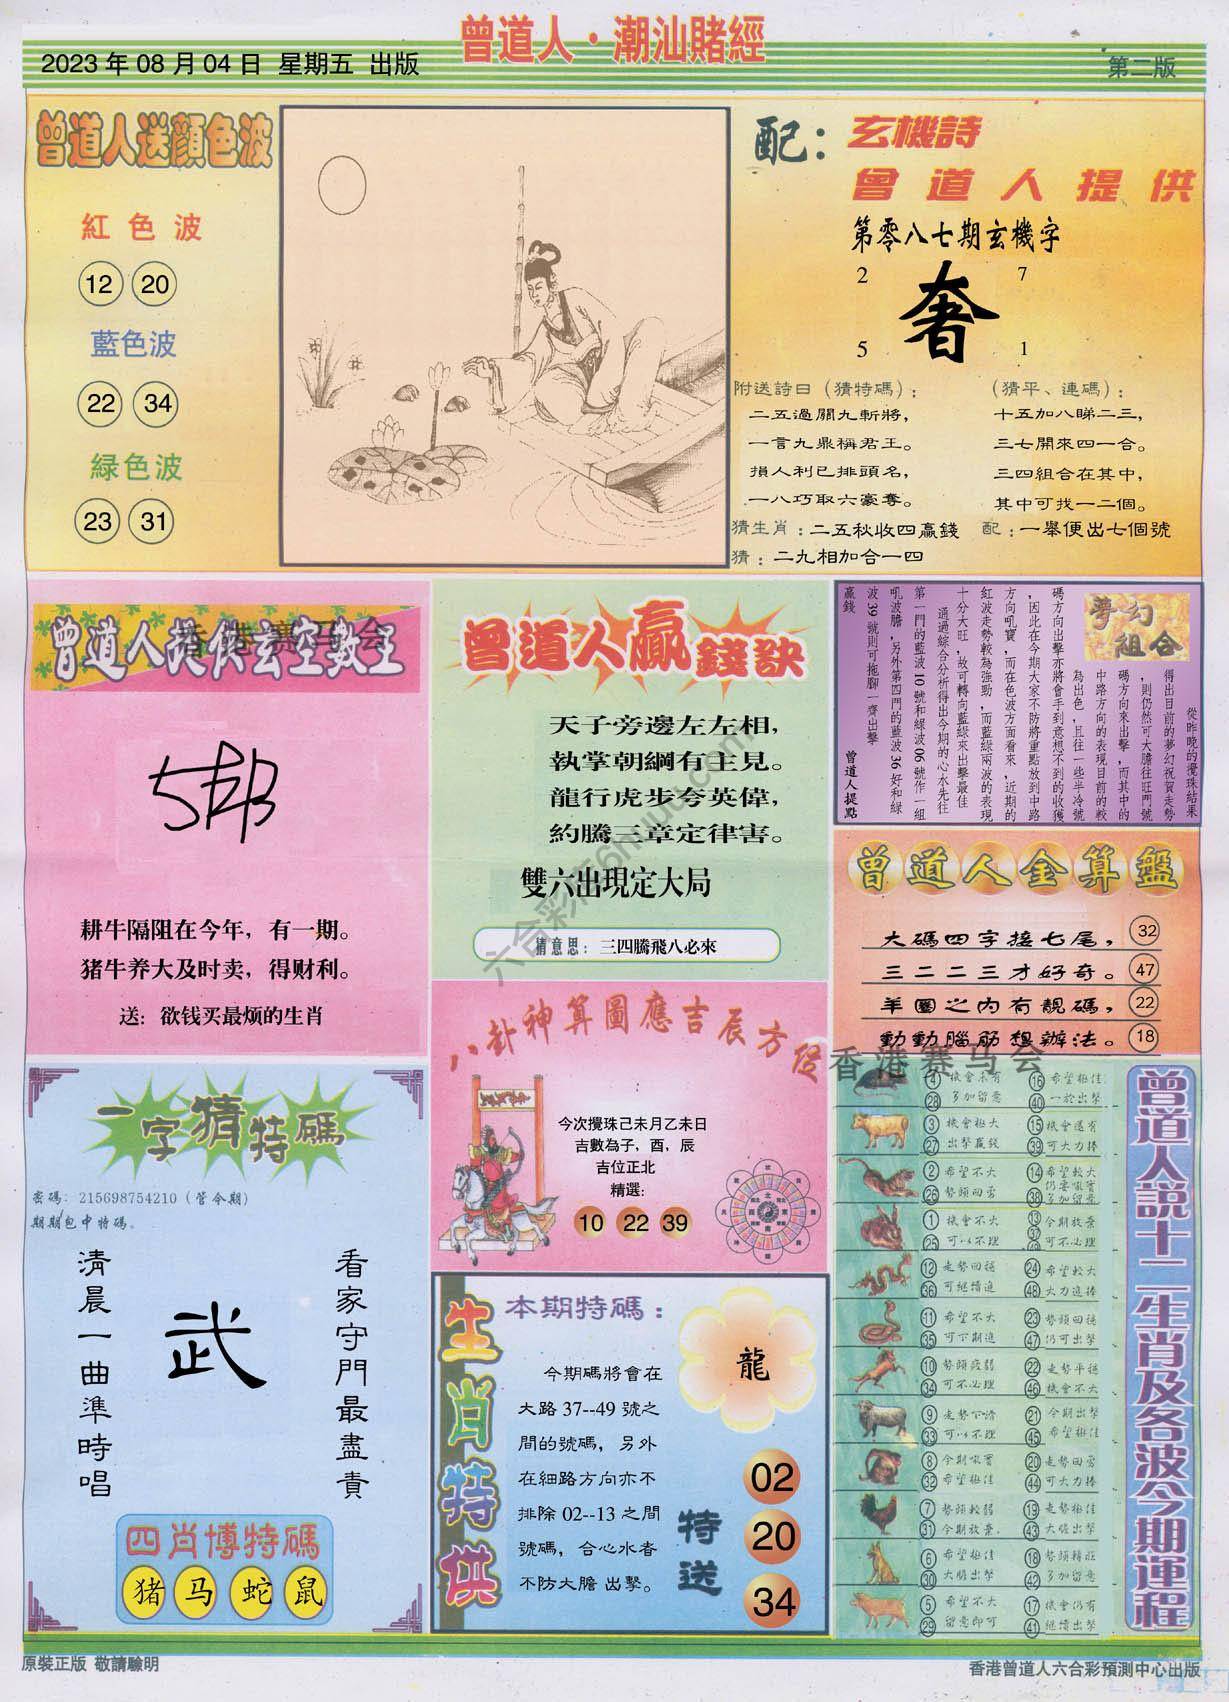 曾道人·潮汕賭經
2023 年 08 月 04 日 星期五 出版
第二版
曾道人送顏色波
紅色波
12 20
藍色波
22 34
緑色波
23 31
配：玄機詩
曾道人提供
第零八七期玄機字
2 7
奢
5 1
附送詩曰（猜特碼）：
二五過關九斬將，
一言九鼎稱君王。
損人利已排頭名，
一八巧取六豪奪。
（猜平、連碼）：
十五加八睇二三，
三七開來四一合。
三四組合在其中，
其中可找一二個。
猜生肖：二五秋收四贏錢
配：一舉便出七個號
猜：二九相加合一四
曾道人提供玄空數王
香港赛马会
耕牛隔阻在今年，有一期。
猪牛养大及时卖，得财利。
送：欲钱买最烦的生肖
曾道人贏錢訣
天子旁邊左左相，
執掌朝綱有主見。
龍行虎步夸英偉，
約騰三章定律害。
雙六出現定大局
猜意思：三四騰飛八必來
夢幻組合
從昨晚的攪珠結果
得出目前的夢幻祝賀走勢
，則仍然可大膽往旺門號
碼方向來出擊，而其中的
中路方向的表現目前的較
為出色，且往一些半冷號
碼方向出擊亦將會手到意想不到的收獲
，因此在今期大家不防將重點放到中路
方向吼寶，而在色波方面看來，近期的
紅波走勢較為強勁，而藍綠兩波的表現
十分大旺，故可轉向藍綠來出擊最佳
通過綜合分析得出今期的心水先往
第一門的藍波 10 號和綠波 06 號作一組
吼波膽，另外第四門的藍波 36 好和綠
波 39 號則可拖腳一齊出擊
贏錢
曾道人提點
曾道人金算盤
大碼四字接七尾， 32
三二二三才好奇。 47
羊圈之内有靚碼， 22
動動腦筋想辦法。 18
香港赛马会
八卦神算圖應吉辰方位
今次攪珠己未月乙未日
吉數為子，酉，辰
吉位正北
精選：
10 22 39
一字猜特碼
密碼：215698754210（管令期）
期期包中特碼。
看家守門最盡責
武
清晨一曲準時唱
四肖博特碼
猪 马 蛇 鼠
生肖特供
本期特碼：
龍
今期碼將會在
大路 37--49 號之
間的號碼，另外
在細路方向亦不
排除 02--13 之間
號碼，合心水者
不防大膽 出擊。
特送
02
20
34
曾道人説十二生肖及各波今期運程
4 機會未有 16 希望極佳
28 多加留意 40 一於出擊
3 機會極大 15 機會還有
27 出擊贏錢 39 可大力捧
2 希望不大 14 希望較大
26 勢頭回勇 38 多加留意
1 機會不大 13 今期放棄
25 可以不理 37 49 可不必理
12 走勢回穩 24 希望較大
36 可繼續追 48 大力追捧
11 希望不大 23 勢頭回穩
35 可下期追 47 仍可出擊
10 勢頭疲弱 22 走勢平穩
34 可不必理 46 機會不大
9 走勢下滑 21 今期出擊
33 可以不理 45 希望極佳
8 今期吼寶 20 走勢回勇
32 希望極佳 44 可大力捧
7 勢頭較弱 19 走勢極佳
31 今期放棄 43 大膽出擊
6 希望極佳 18 勢頭轉旺
30 大膽出擊 42 多加留意
5 希望不大 17 機會仍有
29 留意即可 41 繼續出擊
六合彩库6hwuu.com
原裝正版 敬請驗明
香港曾道人六合彩預測中心出版